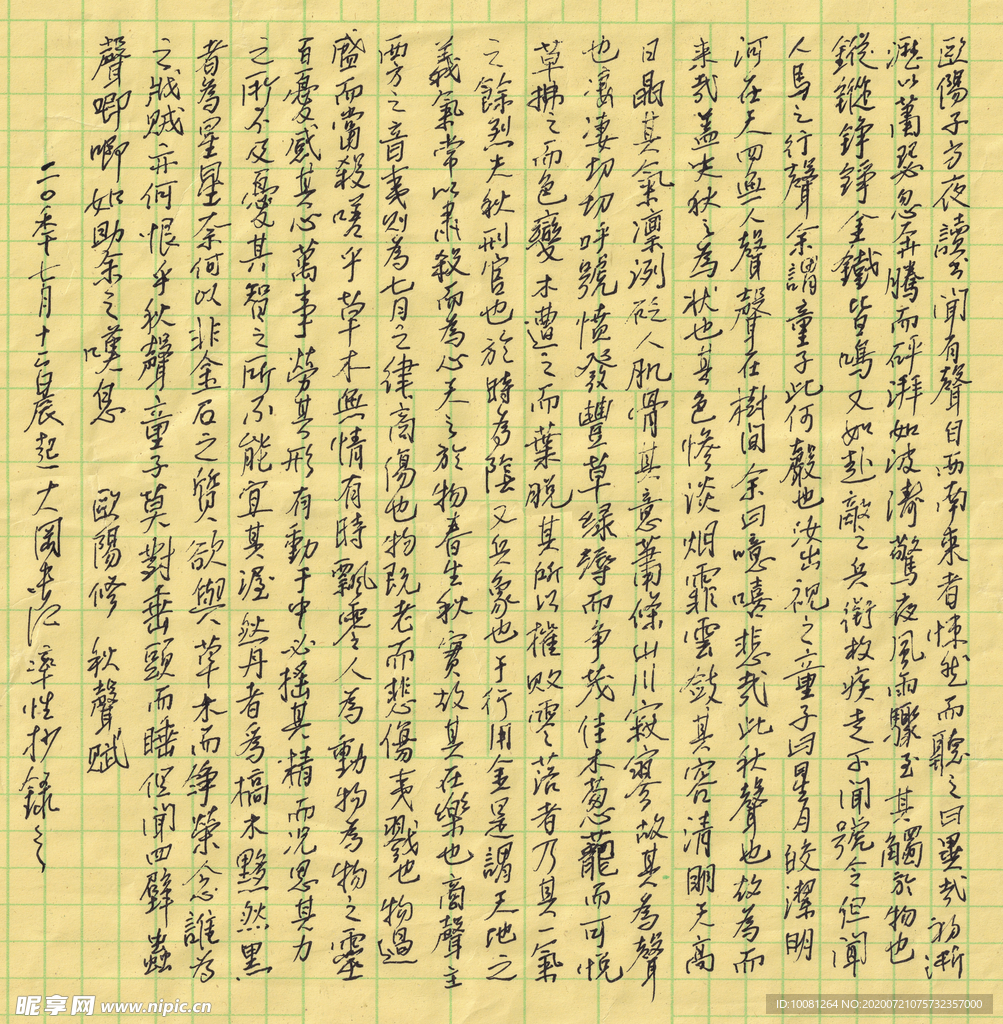 歐陽子方夜讀書聞有聲自西南來者悚然而聽之曰異哉初淅
瀝以蕭颯忽奔騰而砰湃如波濤驚夜風雨驟至其觸於物也
鏦鏦錚錚金鐵皆鳴又如赴敵之兵銜枚疾走不聞號令但聞
人馬之行聲余謂童子此何聲也汝出視之童子曰星月皎潔明
河在天四無人聲聲在樹間余曰噫嘻悲哉此秋聲也故為而
來哉蓋夫秋之為狀也其色慘淡烟霏雲斂其容清明天高
日晶其氣凜洌砭人肌骨其意蕭條山川寂寥故其為聲
也凄凄切切呼號憤發豐草綠縟而争茂佳木葱蘢而可悅
草拂之而色變木遭之而葉脫其所以摧敗零落者乃其一氣
之餘烈夫秋刑官也於時為陰又兵象也于行用金是謂天地之
義氣常以肅殺而為心天之於物春生秋實故其在樂也商聲主
西方之音夷則為七月之律商傷也物既老而悲傷夷戮也物過
盛而當殺嗟乎草木無情有時飄零人為動物為物之靈
百憂感其心萬事勞其形有動于中必搖其精而況思其力
之所不及憂其智之所不能宜其渥然丹者為槁木黟然黑
者為星星奈何以非金石之質欲與草木而争榮念誰為
之戕賊亦何恨乎秋聲童子莫對垂頭而睡但聞四壁蟲
聲唧唧如助余之嘆息 歐陽修 秋聲賦
二〇年七月十二日晨起大國率性抄錄之
昵享网 www.nipic.cn
ID:10081264 NO:20200721075732357000